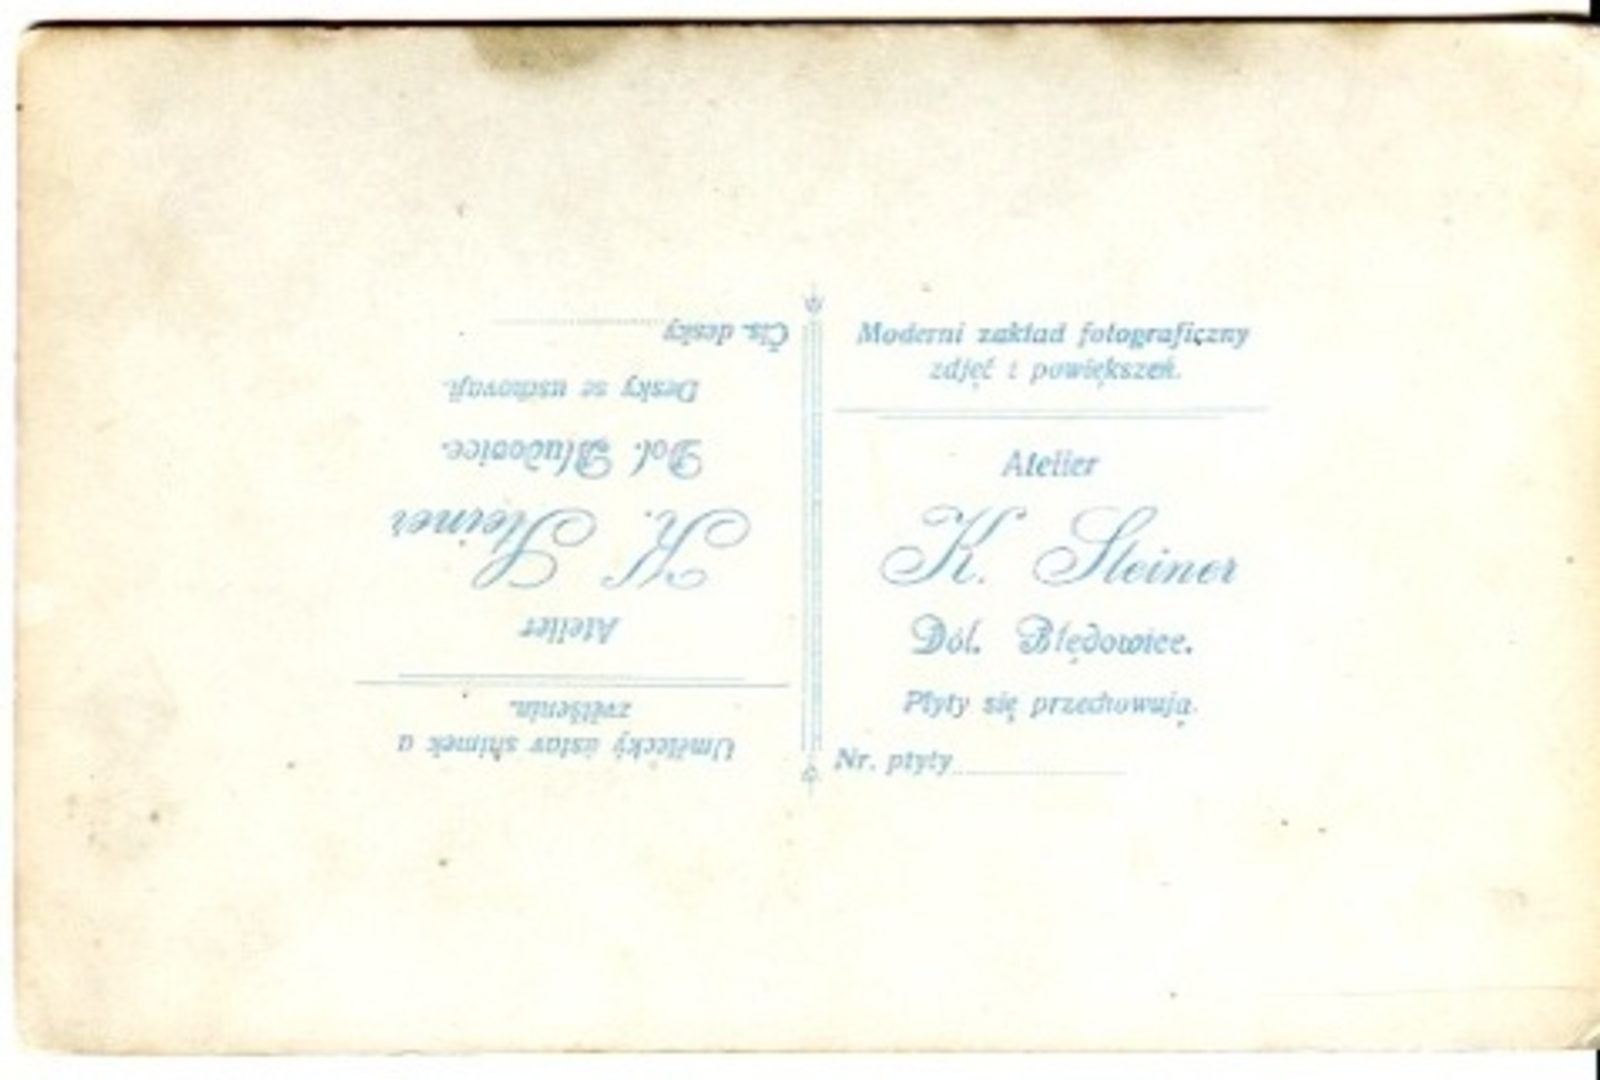 Moderni zakład fotograficzny
zdjęć i powiększeń.
Atelier
K. Steiner
Dól. Błędowice.
Płyty się przechowują.
Nr. płyty
Umělecký ústav snímek a
zvětšenin.
Atelier
K. Steiner
Dol. Bludovice.
Desky se uschovají.
Čís. desky